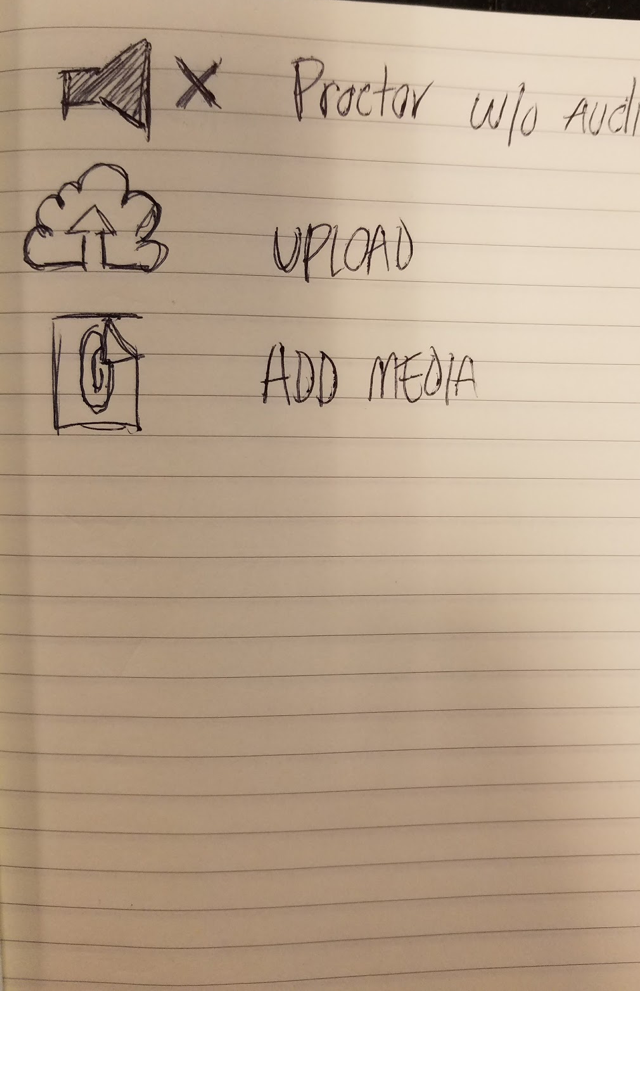 Proctor w/o AUDI
UPLOAD
ADD MEDIA